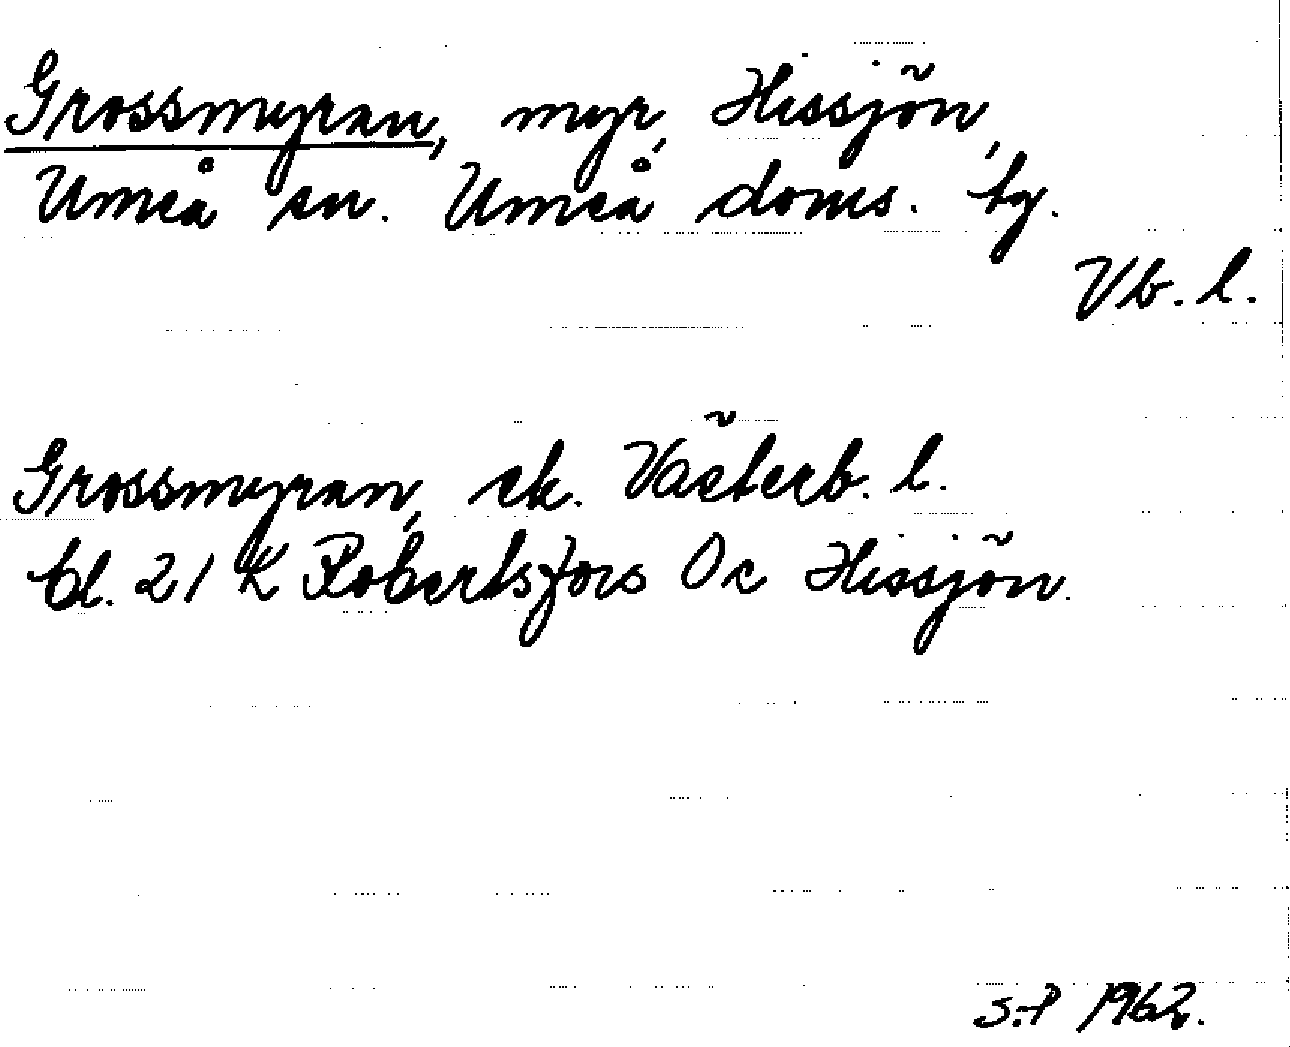 Grossmyran, myr, Hissjön,
Umeå sn. Umeå doms. tg.
Vb. l.
Grossmyran, ek. Västerb. l.
bl. 21 K Robertsfors Oc Hissjön.
S.P 1962.